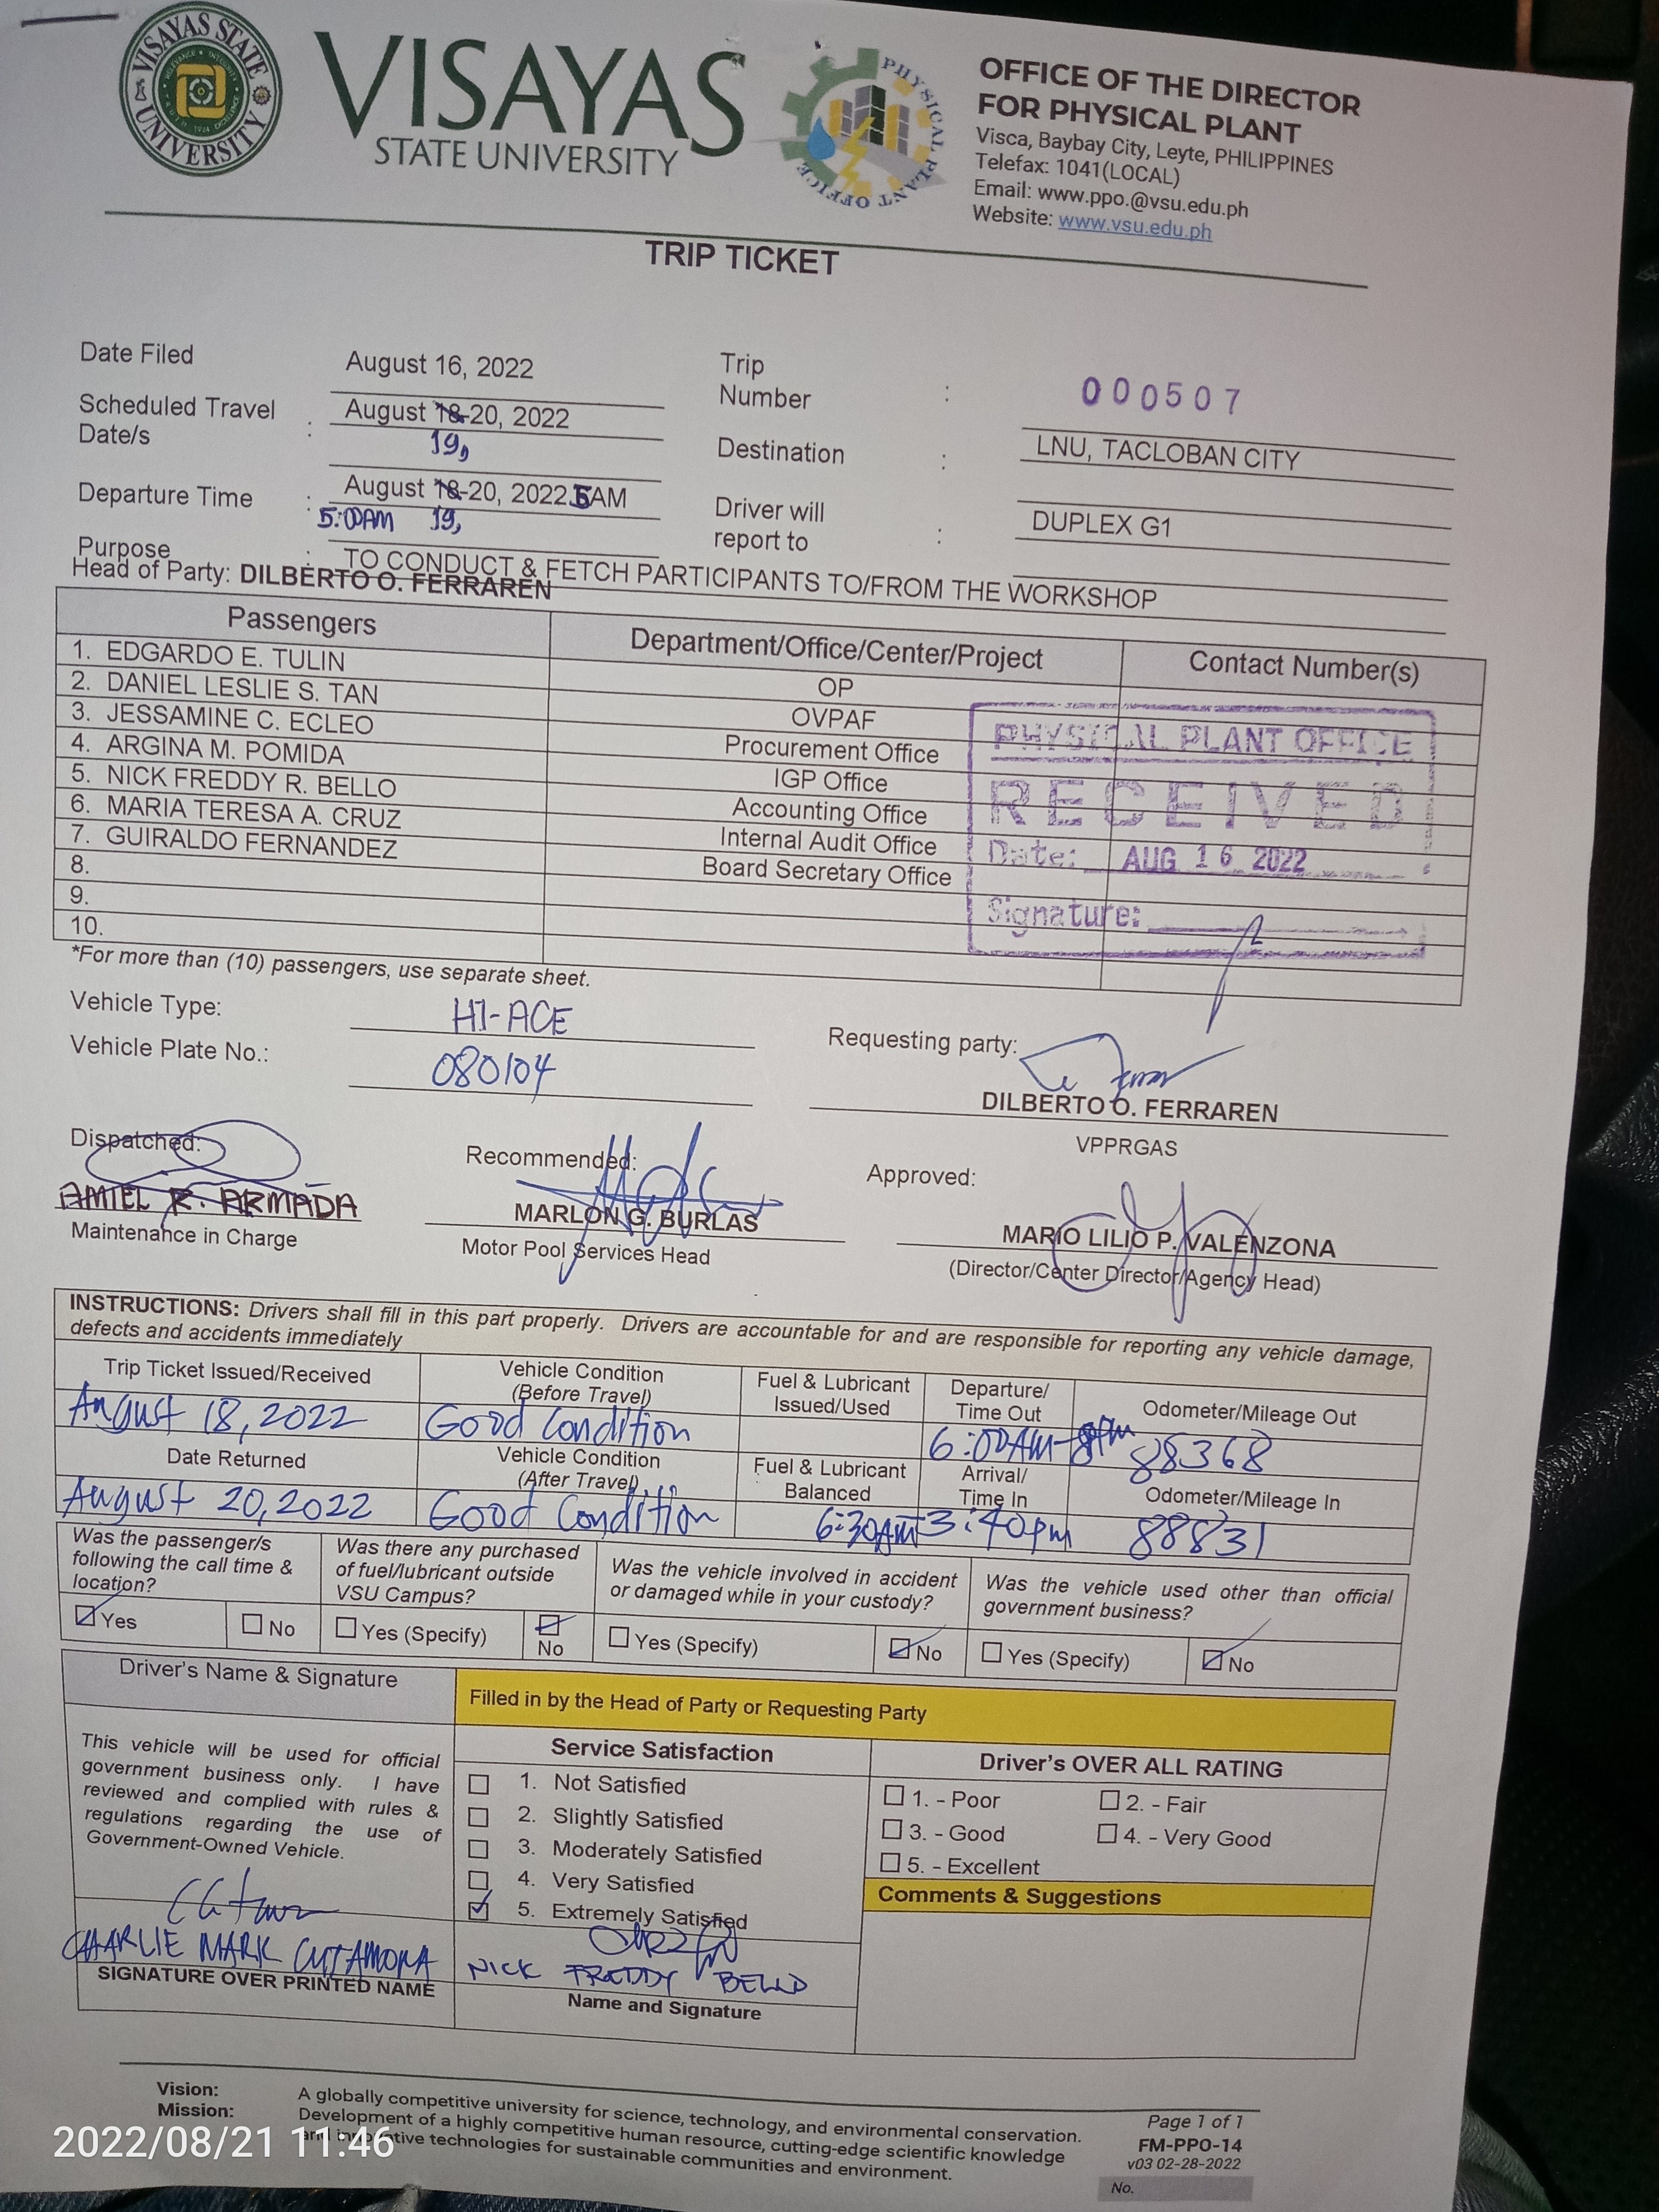 VISAYAS STATE UNIVERSITY
VISAYAS
STATE UNIVERSITY
PHYSICAL PLANT OFFICE
OFFICE OF THE DIRECTOR
FOR PHYSICAL PLANT
Visca, Baybay City, Leyte, PHILIPPINES
Telefax: 1041(LOCAL)
Email: www.ppo.@vsu.edu.ph
Website: www.vsu.edu.ph
TRIP TICKET
Date Filed August 16, 2022
Trip Number : 000507
Scheduled Travel Date/s : August 18-20, 2022
19,
Destination : LNU, TACLOBAN CITY
Departure Time : August 18-20, 2022 5AM
5:00AM 19,
Driver will report to : DUPLEX G1
Purpose : TO CONDUCT & FETCH PARTICIPANTS TO/FROM THE WORKSHOP
Head of Party: DILBERTO O. FERRAREN
Passengers Department/Office/Center/Project Contact Number(s)
1. EDGARDO E. TULIN OP
2. DANIEL LESLIE S. TAN OVPAF
3. JESSAMINE C. ECLEO Procurement Office
4. ARGINA M. POMIDA IGP Office
5. NICK FREDDY R. BELLO Accounting Office
6. MARIA TERESA A. CRUZ Internal Audit Office
7. GUIRALDO FERNANDEZ Board Secretary Office
8.
9.
10.
PHYSICAL PLANT OFFICE
RECEIVED
Date: AUG 16 2022
Signature:
*For more than (10) passengers, use separate sheet.
Vehicle Type: HI-ACE
Vehicle Plate No.: 080104
Requesting party:
DILBERTO O. FERRAREN
VPPRGAS
Dispatched:
AMIEL R. ARMADA
Maintenance in Charge
Recommended:
MARLON G. BURLAS
Motor Pool Services Head
Approved:
MARIO LILIO P. VALENZONA
(Director/Center Director/Agency Head)
INSTRUCTIONS: Drivers shall fill in this part properly. Drivers are accountable for and are responsible for reporting any vehicle damage,
defects and accidents immediately
Trip Ticket Issued/Received Vehicle Condition (Before Travel) Fuel & Lubricant Issued/Used Departure/ Time Out Odometer/Mileage Out
August 18, 2022 Good Condition 6:00AM-8pm 88368
Date Returned Vehicle Condition (After Travel) Fuel & Lubricant Balanced Arrival/ Time In Odometer/Mileage In
August 20, 2022 Good Condition 6:30AM 3:40pm 88831
Was the passenger/s following the call time & location?
Was there any purchased of fuel/lubricant outside VSU Campus?
Was the vehicle involved in accident or damaged while in your custody?
Was the vehicle used other than official government business?
Yes No Yes (Specify) No Yes (Specify) No Yes (Specify) No
Driver's Name & Signature
Filled in by the Head of Party or Requesting Party
This vehicle will be used for official
government business only. I have
reviewed and complied with rules &
regulations regarding the use of
Government-Owned Vehicle.
CHARLIE MARK CUTAMORA
SIGNATURE OVER PRINTED NAME
Service Satisfaction
1. Not Satisfied
2. Slightly Satisfied
3. Moderately Satisfied
4. Very Satisfied
5. Extremely Satisfied
NICK FREDDY BELLO
Name and Signature
Driver's OVER ALL RATING
1. - Poor 2. - Fair
3. - Good 4. - Very Good
5. - Excellent
Comments & Suggestions
Vision: A globally competitive university for science, technology, and environmental conservation.
Mission: Development of a highly competitive human resource, cutting-edge scientific knowledge
and innovative technologies for sustainable communities and environment.
Page 1 of 1
FM-PPO-14
v03 02-28-2022
No.
2022/08/21 11:46